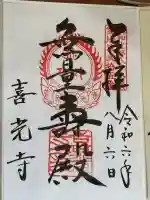 奉拝
令和六年
八月六日
無量壽殿
喜光寺